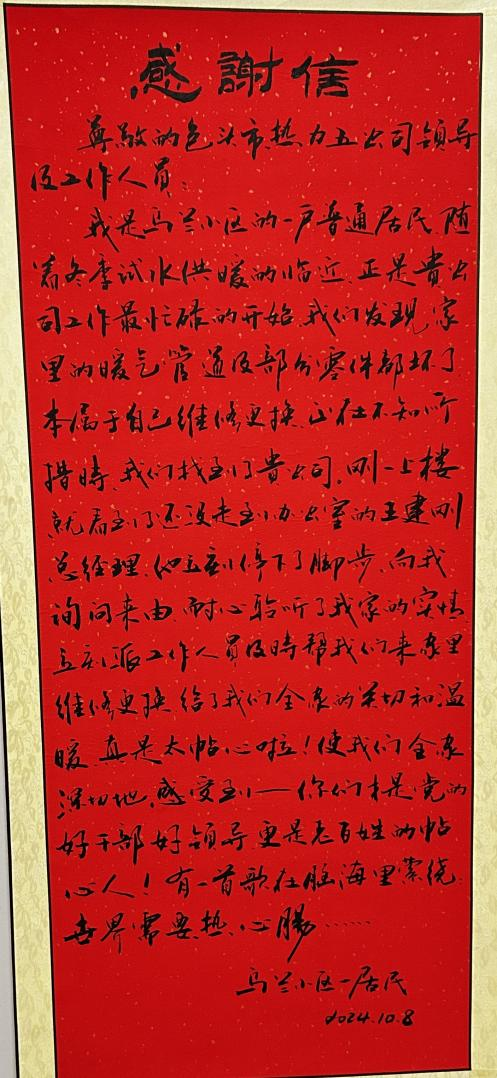 感謝信
尊敬的包头市热力五公司领导
及工作人员:
我是乌兰小区的一户普通居民,随
着冬季试水供暖的临近,正是貴公
司工作最忙碌的开始,我们发现家
里的暖气管道及部分零件都坏了
本属于自己维修更换,正在不知所
措時,我们找到了貴公司,刚一上楼
就看到了还没走到办公室的王建刚
总经理,他立刻停下了脚步,向我
询问来由,耐心聆听了我家的实情,
立刻派工作人员及時帮我们来家里
维修更换,给了我们全家的关切和温
暖,真是太帖心啦!使我们全家
深切地感受到——你们才是党的
好干部好领导更是老百姓的帖
心人!有一首歌在脑海里萦绕,
世界需要热心腸……
乌兰小区一居民
2024.10.8